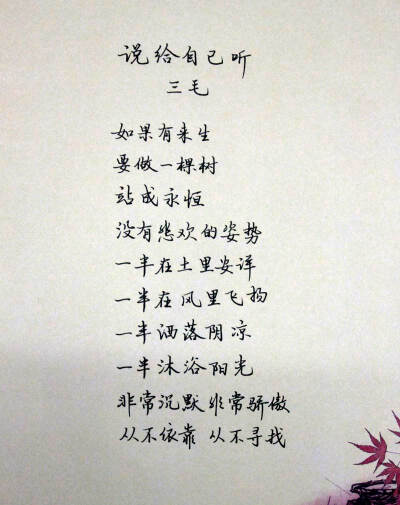 说给自己听
三毛
如果有来生
要做一棵树
站成永恒
没有悲欢的姿势
一半在土里安详
一半在风里飞扬
一半洒落阴凉
一半沐浴阳光
非常沉默 非常骄傲
从不依靠 从不寻找